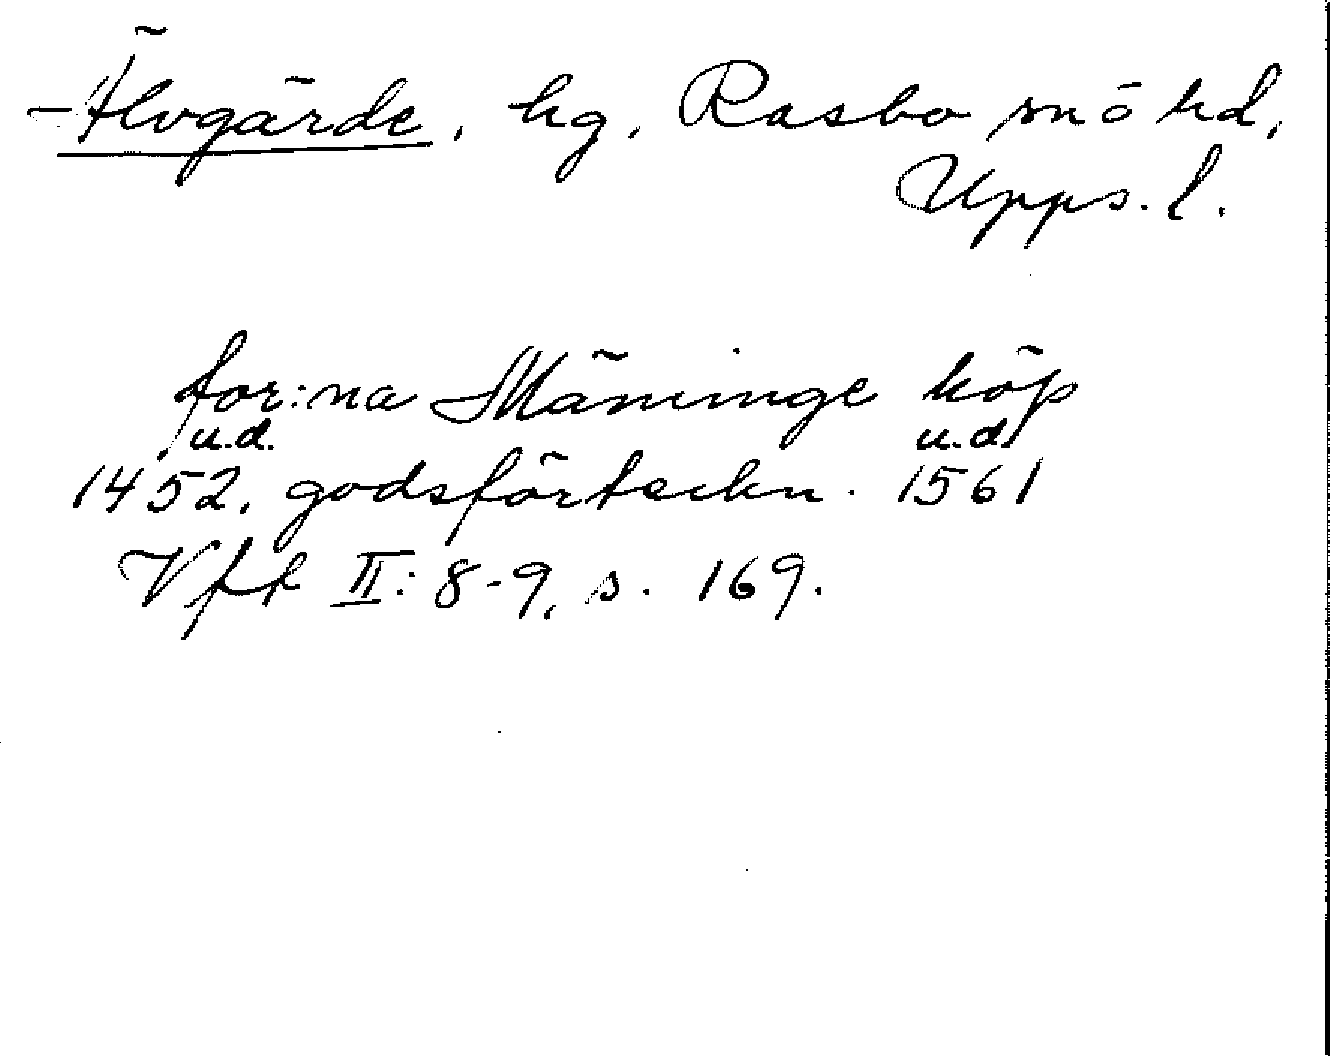 Älvgärde, hg, Rasbo sn ö hd,
Upps. l.
for:na Mäninge köp
u.d. u.d.
1452, godsförteckn. 1561
Vft II: 8-9, s. 169.